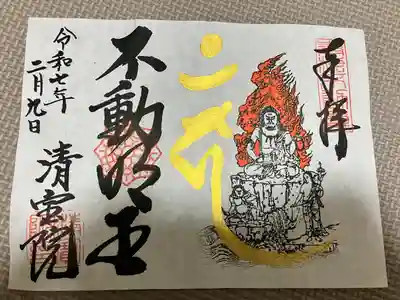 奉拝
不動明王
清雲院
令和七年
二月九日